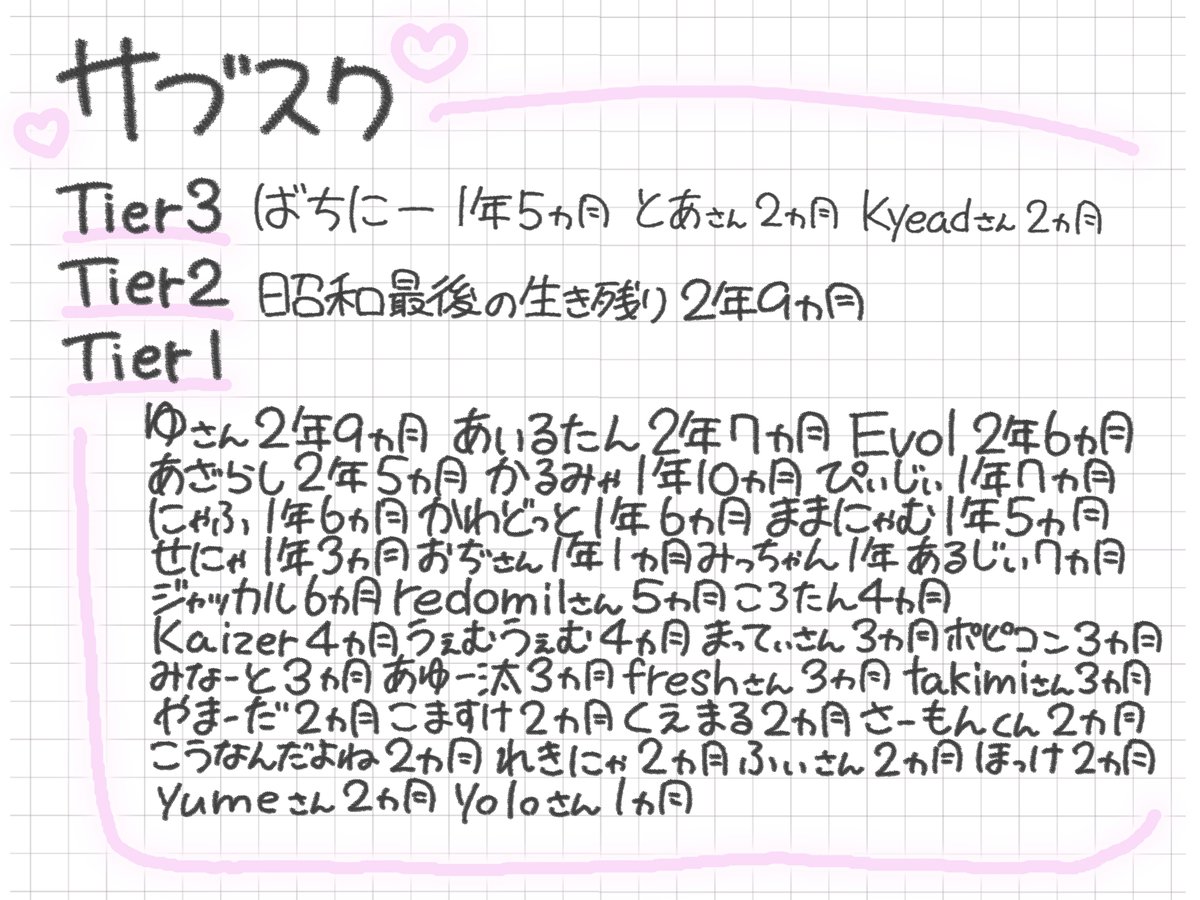 サブスク
Tier3 ばちにー 1年5ヵ月 とあさん2ヵ月 Kyeadさん2ヵ月
Tier2 昭和最後の生き残り 2年9ヵ月
Tier1
ゆさん2年9ヵ月 あいるたん2年7ヵ月 Evol 2年6ヵ月
あざらし2年5ヵ月 かるみゃ1年10ヵ月 ぴぃじぃ1年7ヵ月
にゃふぃ1年6ヵ月 かわどっと1年6ヵ月 ままにゃむ1年5ヵ月
せにゃ1年3ヵ月 おぢさん1年1ヵ月 みっちゃん1年 あるじぃ7ヵ月
ジャッカル6ヵ月 redomilさん5ヵ月 ころたん4ヵ月
Kaizer4ヵ月 うぇむうぇむ4ヵ月 まってぃさん3ヵ月 ポピコン3ヵ月
みなーと3ヵ月 あゆー汰3ヵ月 freshさん3ヵ月 takimiさん3ヵ月
やまーだ2ヵ月 こますけ2ヵ月 くえまる2ヵ月 さーもんくん2ヵ月
こうなんだよね2ヵ月 れきにゃ2ヵ月 ふぃさん2ヵ月 ほっけ2ヵ月
yumeさん2ヵ月 yoloさん1ヵ月